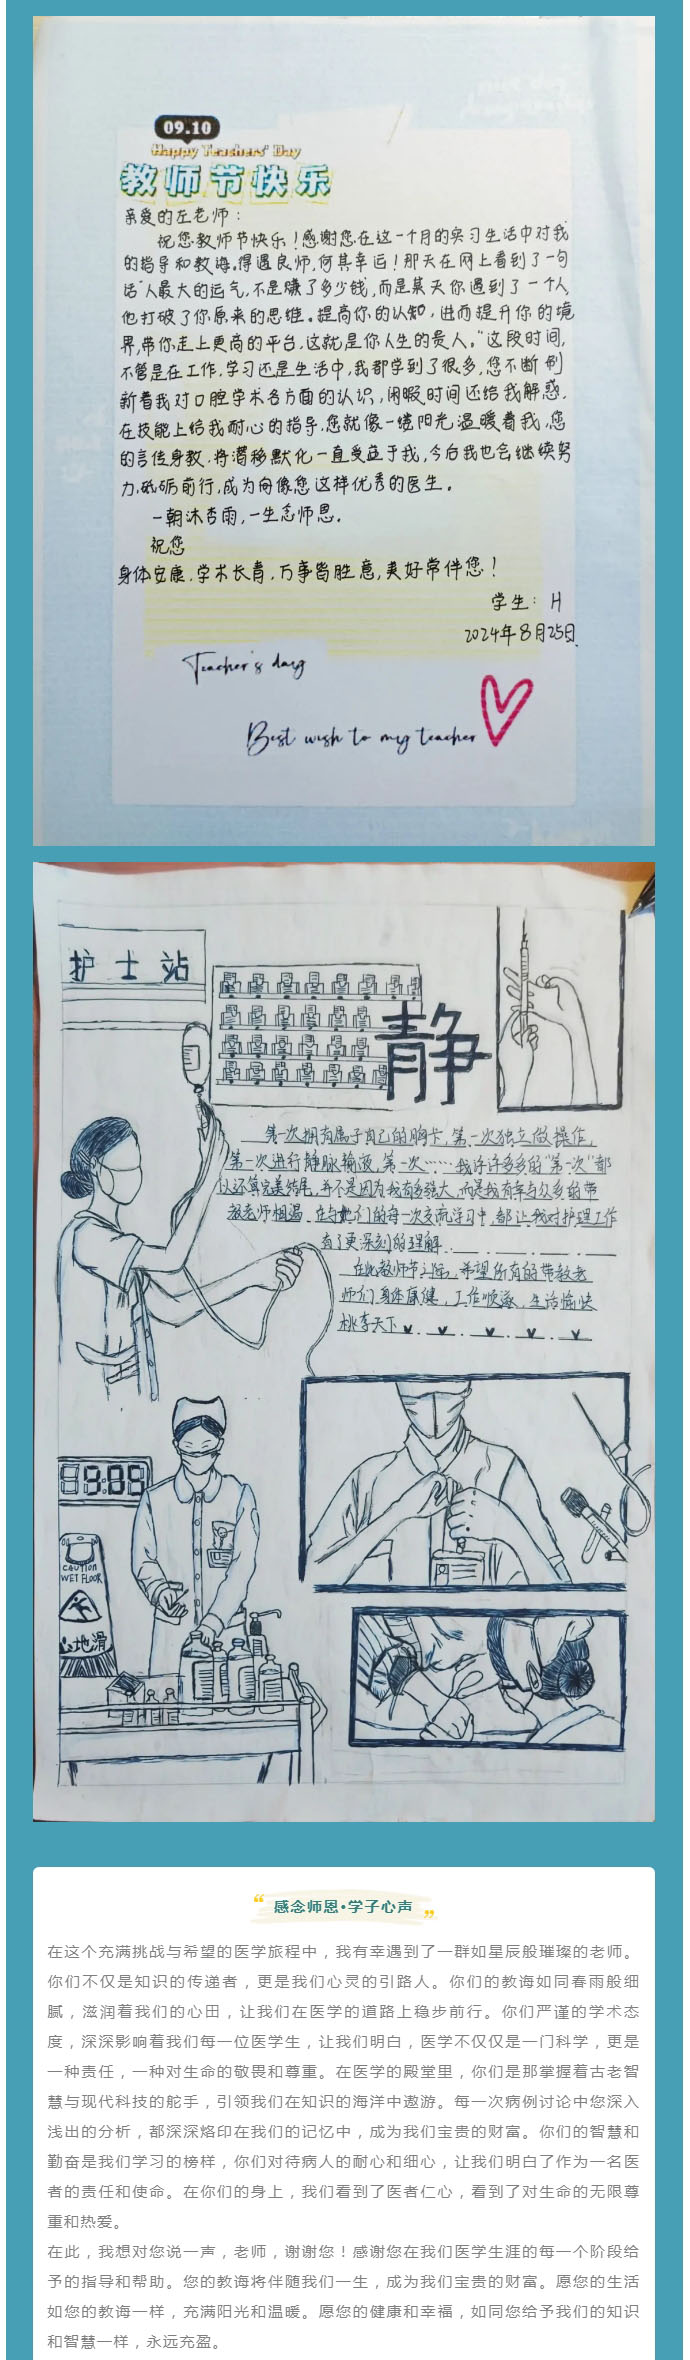 09.10
Happy Teachers' Day
教师节快乐
亲爱的左老师：
祝您教师节快乐！感谢您在这一个月的实习生活中对我
的指导和教诲。得遇良师，何其幸运！那天在网上看到了一句
话"人最大的运气，不是赚了多少钱，而是某天你遇到了一个人
他打破了你原来的思维。提高你的认知，进而提升你的境
界，带你走上更高的平台，这就是你人生的贵人。"这段时间，
不管是在工作，学习还是生活中，我都学到了很多，您不断刷
新着我对口腔学术各方面的认识，闲暇时间还给我解惑，
在技能上给我耐心的指导，您就像一缕阳光温暖着我，您
的言传身教，将潜移默化一直受益于我，今后我也会继续努
力，砥砺前行，成为向像您这样优秀的医生。
一朝沐杏雨，一生念师恩。
祝您
身体安康，学术长青，万事皆胜意，美好常伴您！
学生：H
2024年8月25日
Teacher's day
Best wish to my teacher
护士站
静
第一次拥有属于自己的胸卡，第一次独立做操作，
第一次进行静脉输液，第一次……我许许多多的"第一次"都
以还算完美结尾，并不是因为我有多强大，而是我有幸与众多的带
教老师相遇，在与她们的每一次交流学习中，都让我对护理工作
有了更深刻的理解.
在此教师节之际，希望所有的带教老
师们身体康健，工作顺遂，生活愉快
桃李天下
CAUTION
WET FLOOR
心地滑
感念师恩•学子心声
在这个充满挑战与希望的医学旅程中，我有幸遇到了一群如星辰般璀璨的老师。
你们不仅是知识的传递者，更是我们心灵的引路人。你们的教诲如同春雨般细
腻，滋润着我们的心田，让我们在医学的道路上稳步前行。你们严谨的学术态
度，深深影响着我们每一位医学生，让我们明白，医学不仅仅是一门科学，更是
一种责任，一种对生命的敬畏和尊重。在医学的殿堂里，你们是那掌握着古老智
慧与现代科技的舵手，引领我们在知识的海洋中遨游。每一次病例讨论中您深入
浅出的分析，都深深烙印在我们的记忆中，成为我们宝贵的财富。你们的智慧和
勤奋是我们学习的榜样，你们对待病人的耐心和细心，让我们明白了作为一名医
者的责任和使命。在你们的身上，我们看到了医者仁心，看到了对生命的无限尊
重和热爱。
在此，我想对您说一声，老师，谢谢您！感谢您在我们医学生涯的每一个阶段给
予的指导和帮助。您的教诲将伴随我们一生，成为我们宝贵的财富。愿您的生活
如您的教诲一样，充满阳光和温暖。愿您的健康和幸福，如同您给予我们的知识
和智慧一样，永远充盈。